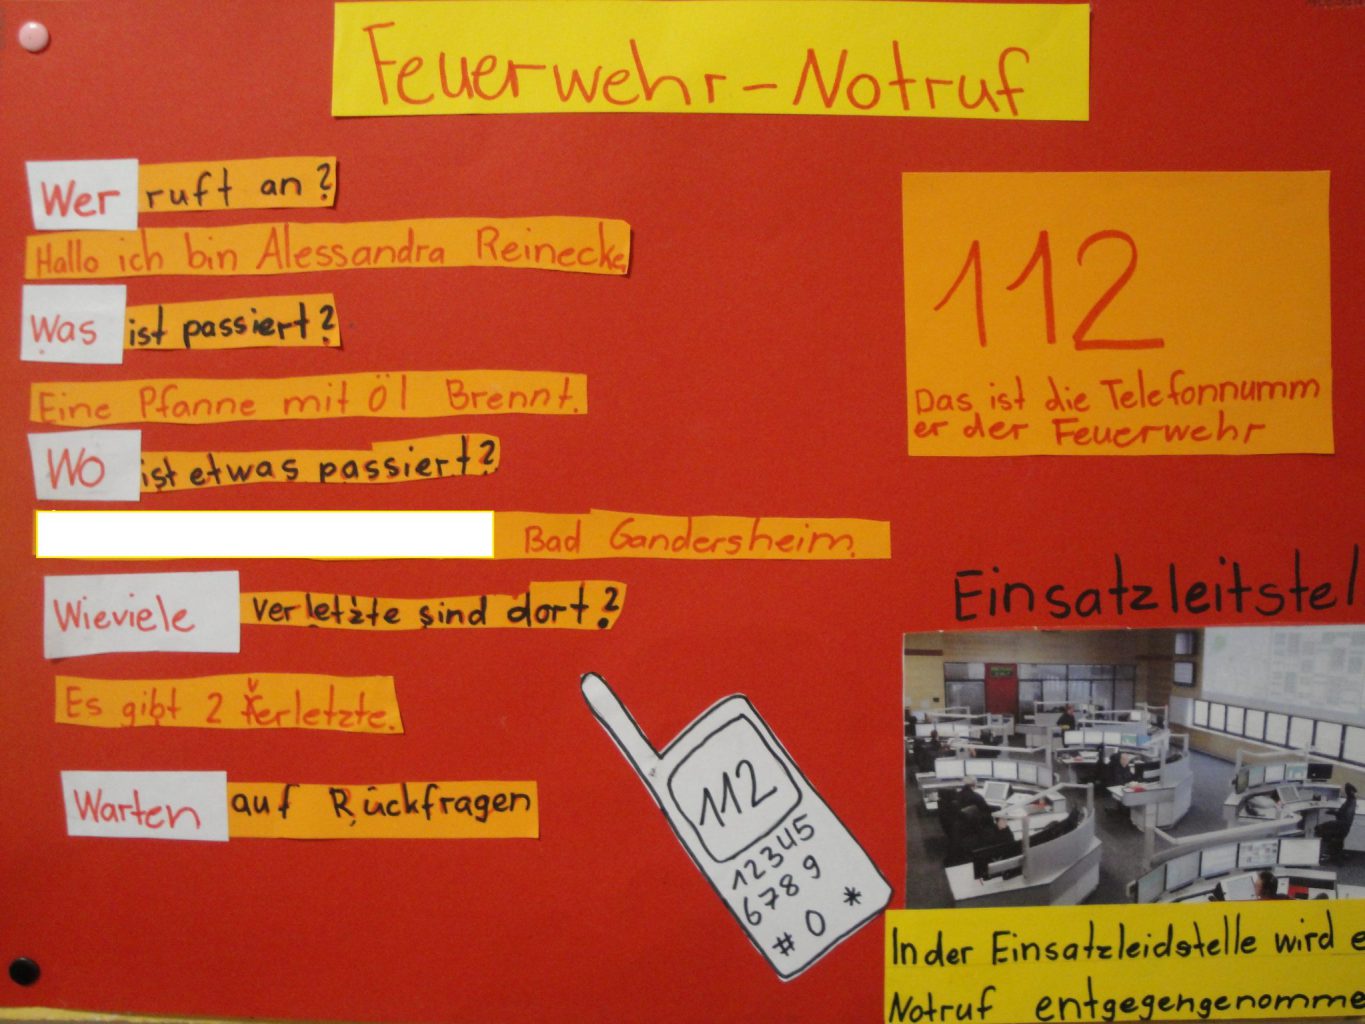 Feuerwehr-Notruf
Wer ruft an?
Hallo ich bin Alessandra Reinecke
Was ist passiert?
Eine Pfanne mit Öl Brennt.
Wo ist etwas passiert?
Bad Gandersheim.
Wieviele verletzte sind dort?
Es gibt 2 Verletzte.
Warten auf Rückfragen
112
Das ist die Telefonnumm
er der Feuerwehr
112
12345
6789
# 0 *
Einsatzleitstel
In der Einsatzleidstelle wird e
Notruf entgegengenomme